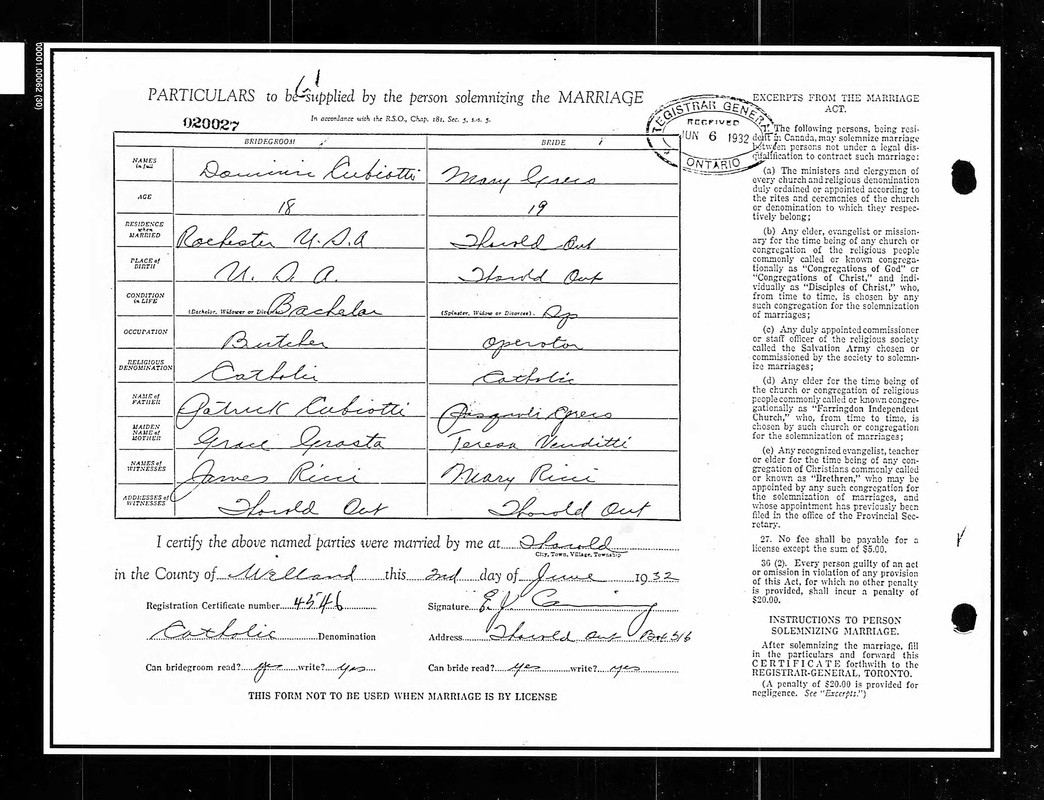 00001.00062 (30)
PARTICULARS to be supplied by the person solemnizing the MARRIAGE
In accordance with the R.S.O., Chap. 181, Sec. 3, s.s. 5.
020027
REGISTRAR GENERAL
RECEIVED
JUN 6 1932
ONTARIO
BRIDEGROOM BRIDE
NAMES in full Mary Greco
AGE 18 19
RESIDENCE when MARRIED Rochester U.S.A Thorold Ont
PLACE of BIRTH U. S. A. Thorold Ont
CONDITION in LIFE (Bachelor, Widower or Divorcee) Bachelor (Spinster, Widow or Divorcee). Sp
OCCUPATION Butcher operator
RELIGIOUS DENOMINATION Catholic Catholic
NAME of FATHER Patrick Cubiotti Greco
MAIDEN NAME of MOTHER Grace Teresa Venditti
NAMES of WITNESSES James Ricci Mary Ricci
ADDRESSES of WITNESSES Thorold Ont Thorold Ont
I certify the above named parties were married by me at Thorold
City, Town, Village, Township
in the County of Welland this 2nd day of June 1932
Registration Certificate number 4546 Signature E J
Catholic Denomination Address Thorold Ont Box 516
Can bridegroom read? yes write? yes Can bride read? yes write? yes
THIS FORM NOT TO BE USED WHEN MARRIAGE IS BY LICENSE
EXCERPTS FROM THE MARRIAGE
ACT.
The following persons, being resi-
dent in Canada, may solemnize marriage
between persons not under a legal dis-
qualification to contract such marriage:
(a) The ministers and clergymen of
every church and religious denomination
duly ordained or appointed according to
the rites and ceremonies of the church
or denomination to which they respec-
tively belong;
(b) Any elder, evangelist or mission-
ary for the time being of any church or
congregation of the religious people
commonly called or known congrega-
tionally as "Congregations of God" or
"Congregations of Christ," and indi-
vidually as "Disciples of Christ," who,
from time to time, is chosen by any
such congregation for the solemnization
of marriages;
(c) Any duly appointed commissioner
or staff officer of the religious society
called the Salvation Army chosen or
commissioned by the society to solemn-
ize marriages;
(d) Any elder for the time being of
the church or congregation of religious
people commonly called or known congre-
gationally as "Farringdon Independent
Church," who, from time to time, is
chosen by such church or congregation
for the solemnization of marriages;
(e) Any recognized evangelist, teacher
or elder for the time being of any con-
gregation of Christians commonly called
or known as "Brethren," who may be
appointed by any such congregation for
the solemnization of marriages, and
whose appointment has previously been
filed in the office of the Provincial Sec-
retary.
27. No fee shall be payable for a
license except the sum of $5.00.
36 (2). Every person guilty of an act
or omission in violation of any provision
of this Act, for which no other penalty
is provided, shall incur a penalty of
$20.00.
INSTRUCTIONS TO PERSON
SOLEMNIZING MARRIAGE.
After solemnizing the marriage, fill
in the particulars and forward this
CERTIFICATE forthwith to the
REGISTRAR-GENERAL, TORONTO.
(A penalty of $20.00 is provided for
negligence. See "Excerpts.")